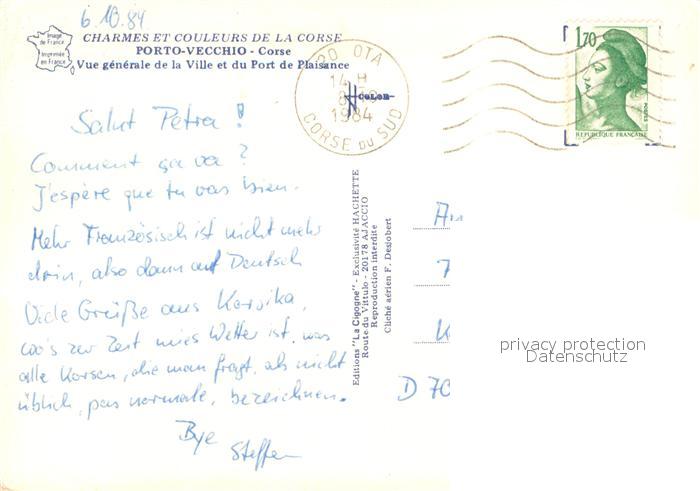 6.10.84
Image
de France
Imprimée
en France
CHARMES ET COULEURS DE LA CORSE
PORTO-VECCHIO - Corse
Vue générale de la Ville et du Port de Plaisance
20 OTA
14 H
1984
CORSE DU SUD
COLOR
1,70
POSTES
REPUBLIQUE FRANÇAISE
Salut Petra !
Comment ça va ?
J'espère que tu vas bien.
Mehr Französisch ist nicht mehr
drin, also dann auf Deutsch
Viele Grüße aus Korsika,
wo's zur Zeit mies Wetter ist, was
alle Korsen, die man fragt, als nicht
üblich, pas normale, bezeichnen.
Bye
Steffen
Editions "La Cigogne" - Exclusivité HACHETTE
Route du Vittulo - 20178 AJACCIO
Reproduction interdite
Cliché aérien F. Desjobert
D 70
privacy protection
Datenschutz